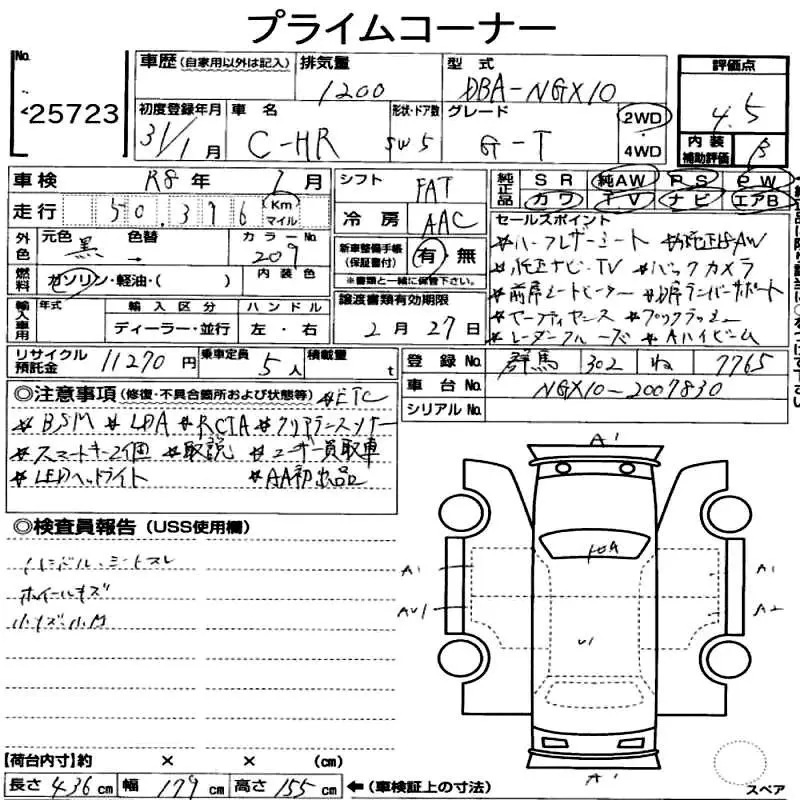 プライムコーナー
No.
25723
車歴 (自家用以外は記入)
排気量 1200
型式 DBA-NGX10
評価点 4.5
初度登録年月 31/1月
車名 C-HR
形状・ドア数 SW 5
グレード G-T
2WD
4WD
内装補助評価 B
車検 R8年 1月
シフト FAT
純正品 SR 純AW PS PW
カワ TV ナビ エアB
走行 50,396 Km マイル
冷房 AAC
セールスポイント
外色 元色 黒 色替 → カラーNo. 209
新車整備手帳(保証書付) 有・無
※書類と一緒に保管下さい。
☆ハーフレザーシート ☆純正18AW
☆純正ナビ・TV ☆バックカメラ
燃料 ガソリン・軽油・( ) 内装色
☆前席シートヒーター
輸入車用 年式 輸入区分 ハンドル
ディーラー・並行 左・右
譲渡書類有効期限
2月27日
☆セーフティセンス
☆レーダークルーズ ☆Aハイビーム
リサイクル預託金 11270円 乗車定員 5人 積載量 t
登録No. 群馬 302 ね 7765
車台No. NGX10-2007830
シリアルNo.
◎注意事項 (修復・不具合箇所および状態等) ☆ETC
☆BSM ☆LDA ☆RCTA ☆クリアランスソナー
☆スマートキー2個 ☆取説 ☆ユーザー買取車
☆LEDヘッドライト ☆AA初出品
◎検査員報告 (USS使用欄)
ハンドル・シートスレ
ホイールキズ
小キズ小凹
A1
A1
A1
AU1
A2
U1
A1
【荷台内寸】約 × × (cm)
長さ 436cm 幅 179cm 高さ 155cm ←(車検証上の寸法)
スペア